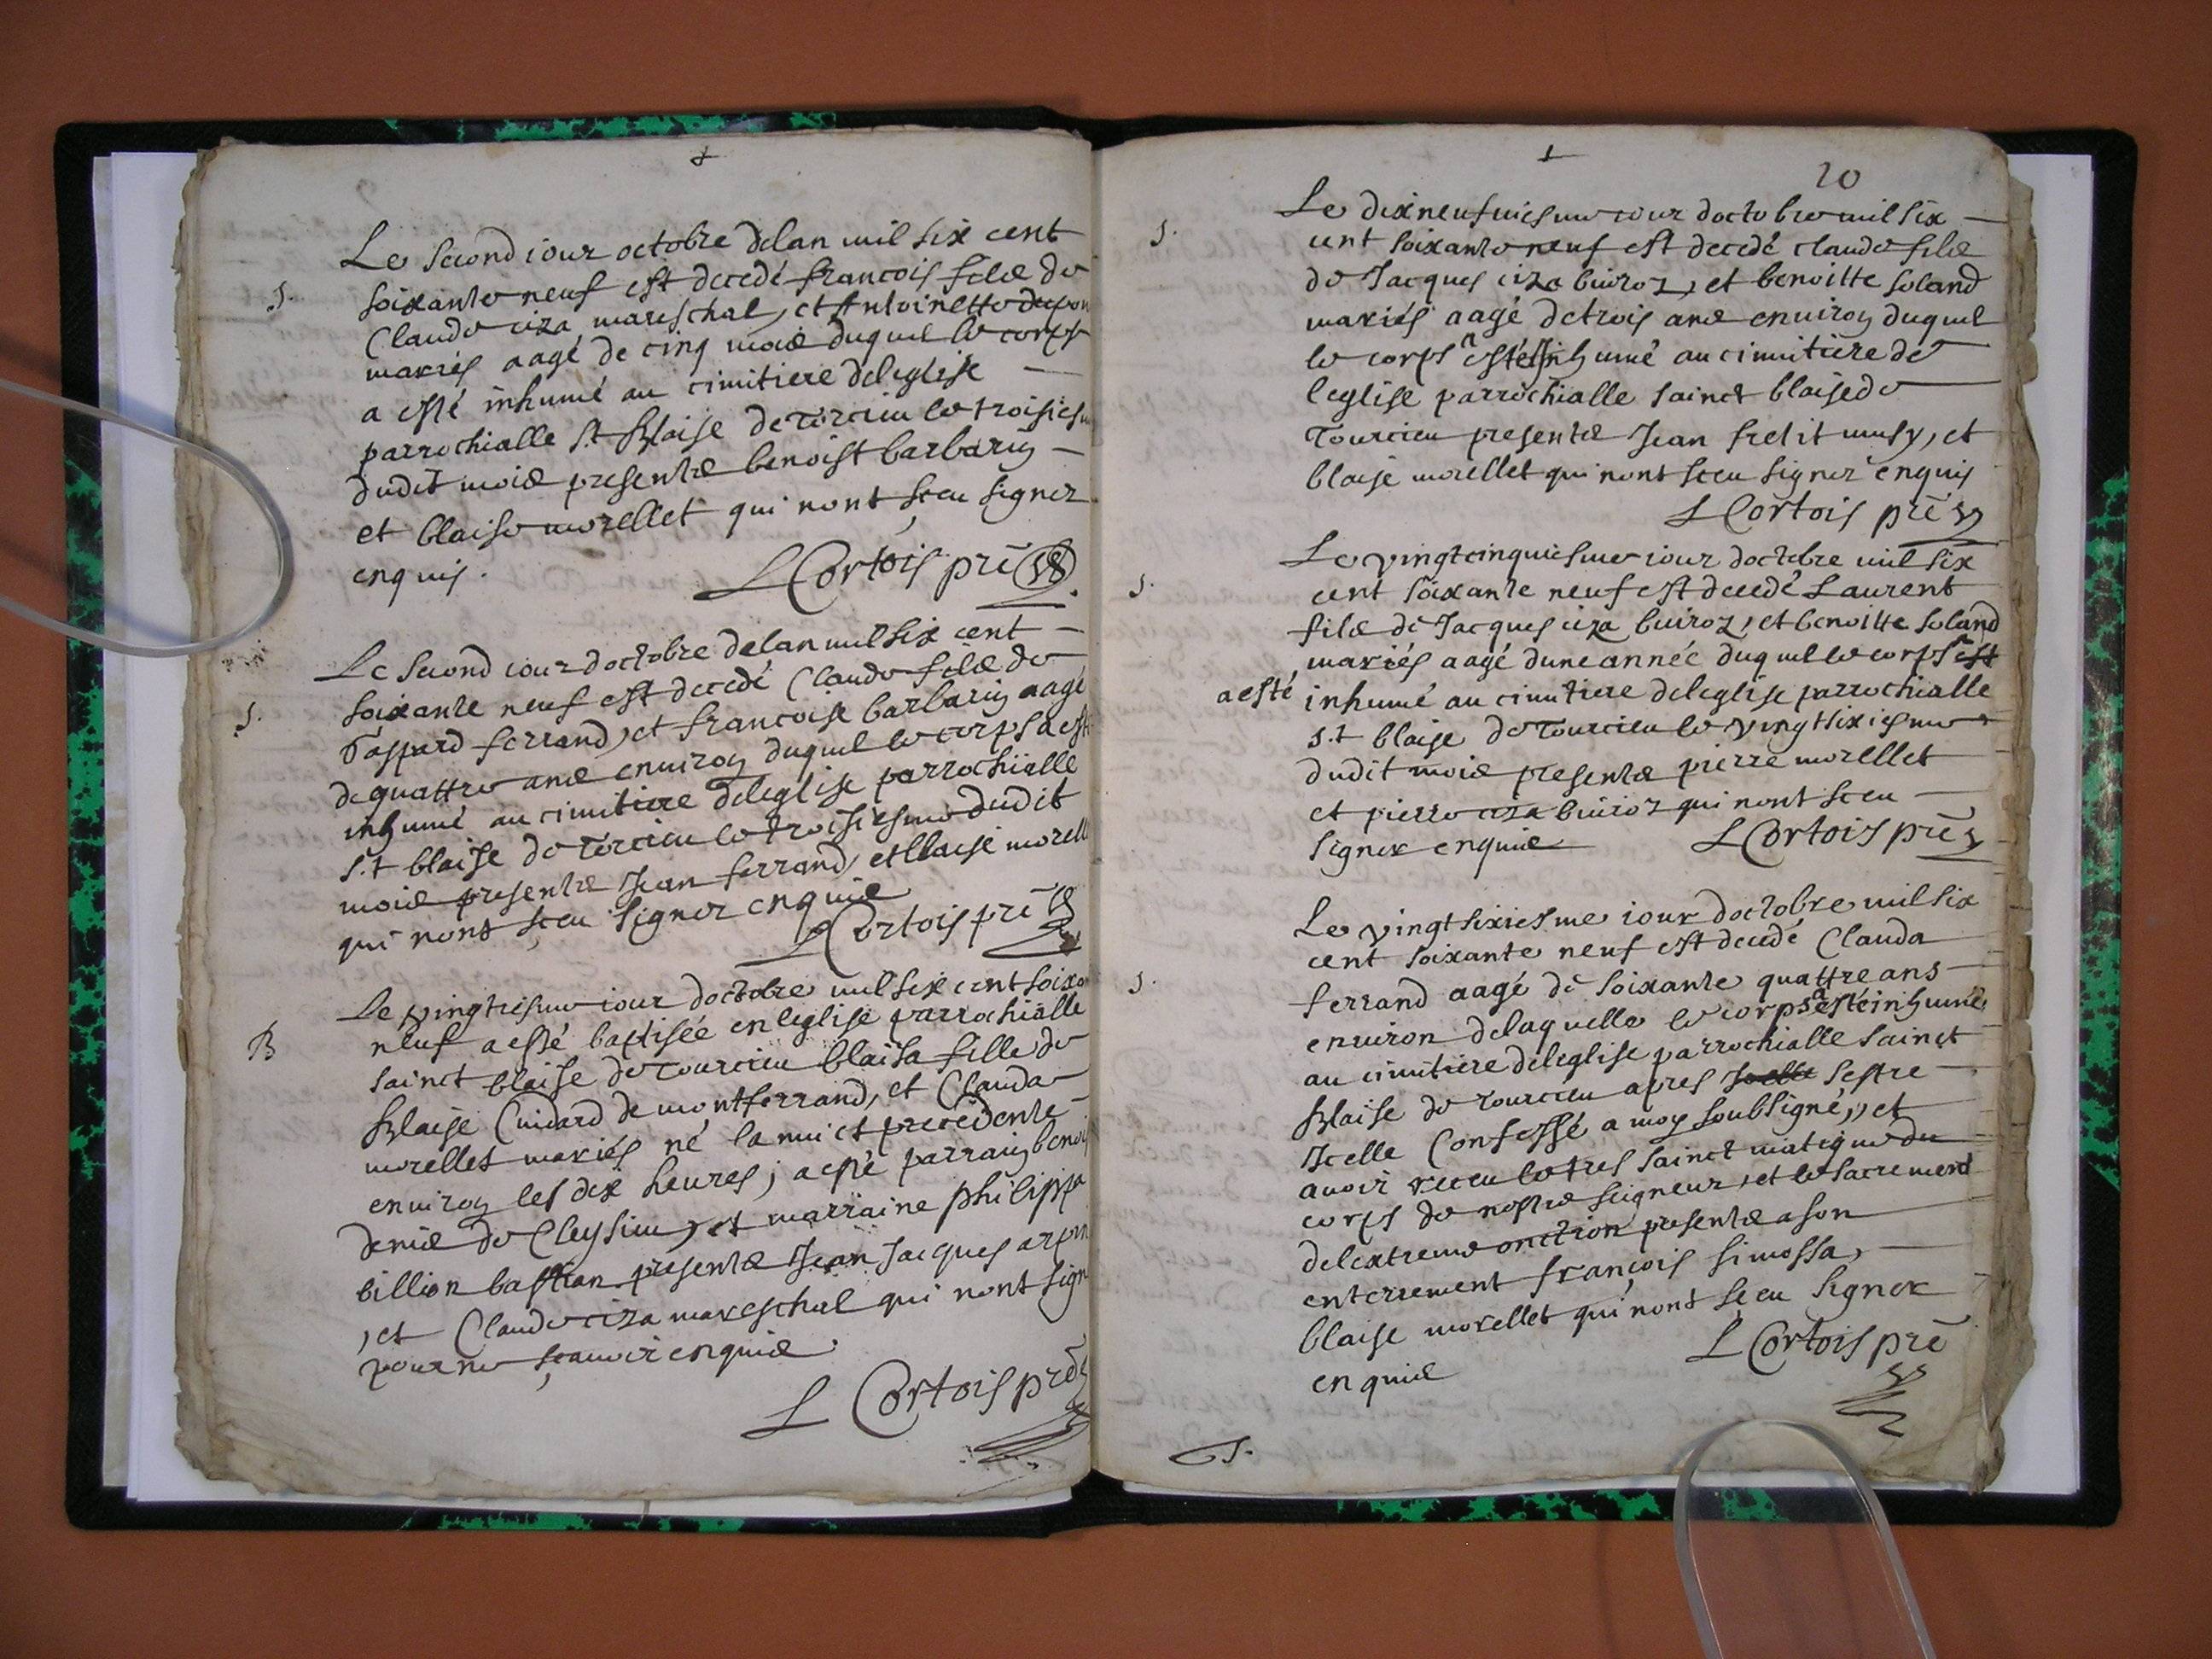 Le second iour octobre delan mil six cent
S.
soixante neuf est decedé francois filz de
Claude ciza mareschal, et Antoinette dupon
mariés aagé de cinq mois duquel le corps
a esté inhumé au cimitiere deleglise
parrochialle St Blaise de Torcieu le troisiesm
dudit mois presentz benoist barbarin
et blaise morellet qui nont sceu signer
enquis.
L Cortois prē
Le second iour doctobre delan mil six cent
S.
soixante neuf est decedé Claude filz de
Gaspard ferrand, et francoise barbarin aagé
de quattre ans enuiron duquel le corps a esté
inhumé au cimitiere deleglise parrochialle
s.t blaise de Torcieu le troisiesme dudit
mois presentz Jean ferrand, et blaise morell
qui nont sceu signer enquis
L Cortois prē
Le vingtiesme iour doctobre mil six cent soixa
B
neuf a esté baptisée en leglise parrochialle
sainct blaise de Tourcieu blaisa fille de
Blaise Cuidard de montferrand, et Clauda
morellet mariés né la nuict precedente
enuiron les dix heures; a esté parrain benoi
denis de Cleysieu, et marraine philippa
billion bastian presentz Jean Jacques arpin
, et Claude ciza mareschal qui nont sign
pour ne scauoir enquis
L Cortois prē
20
Le dixneufuiesme iour doctobre mil six
S.
cent soixante neuf est decedé claude filz
de Jacques ciza buiroz, et benoitte soland
mariés aagé de trois ans enuiron duquel
le corps a esté inhumé au cimitiere de
leglise parrochialle sainct blaise de
Tourcieu presentz Jean fretit musy, et
blaise morellet qui nont sceu signer enquis
L Cortois prē
Le vingtcinquiesme iour doctobre mil six
S.
cent soixante neuf est decedé Laurent
filz de Jacques ciza buiroz, et benoitte soland
mariés aagé dune année duquel le corps est
a esté inhumé au cimitiere deleglise parrochialle
s.t blaise de Tourcieu le vingtsixiesme
dudit mois presentz pierre morellet
et pierre ciza buiroz qui nont sceu
signer enquis
L Cortois prē
Le vingtsixiesme iour doctobre mil six
cent soixante neuf est decedé Clauda
S.
ferrand aagé de soixante quattre ans
enuiron delaquelle le corps a esté inhumé
au cimitiere deleglise parrochialle sainct
Blaise de Tourcieu apres Icelle sestre
Icelle Confessé a moy soubsigné, et
auoir receu le tres sainct viatique du
corps de nostre seigneur, et le sacrement
delextreme onction presentz a son
enterrement françois simossa,
blaise morellet qui nont sceu signer
enquis
L Cortois prē
S.